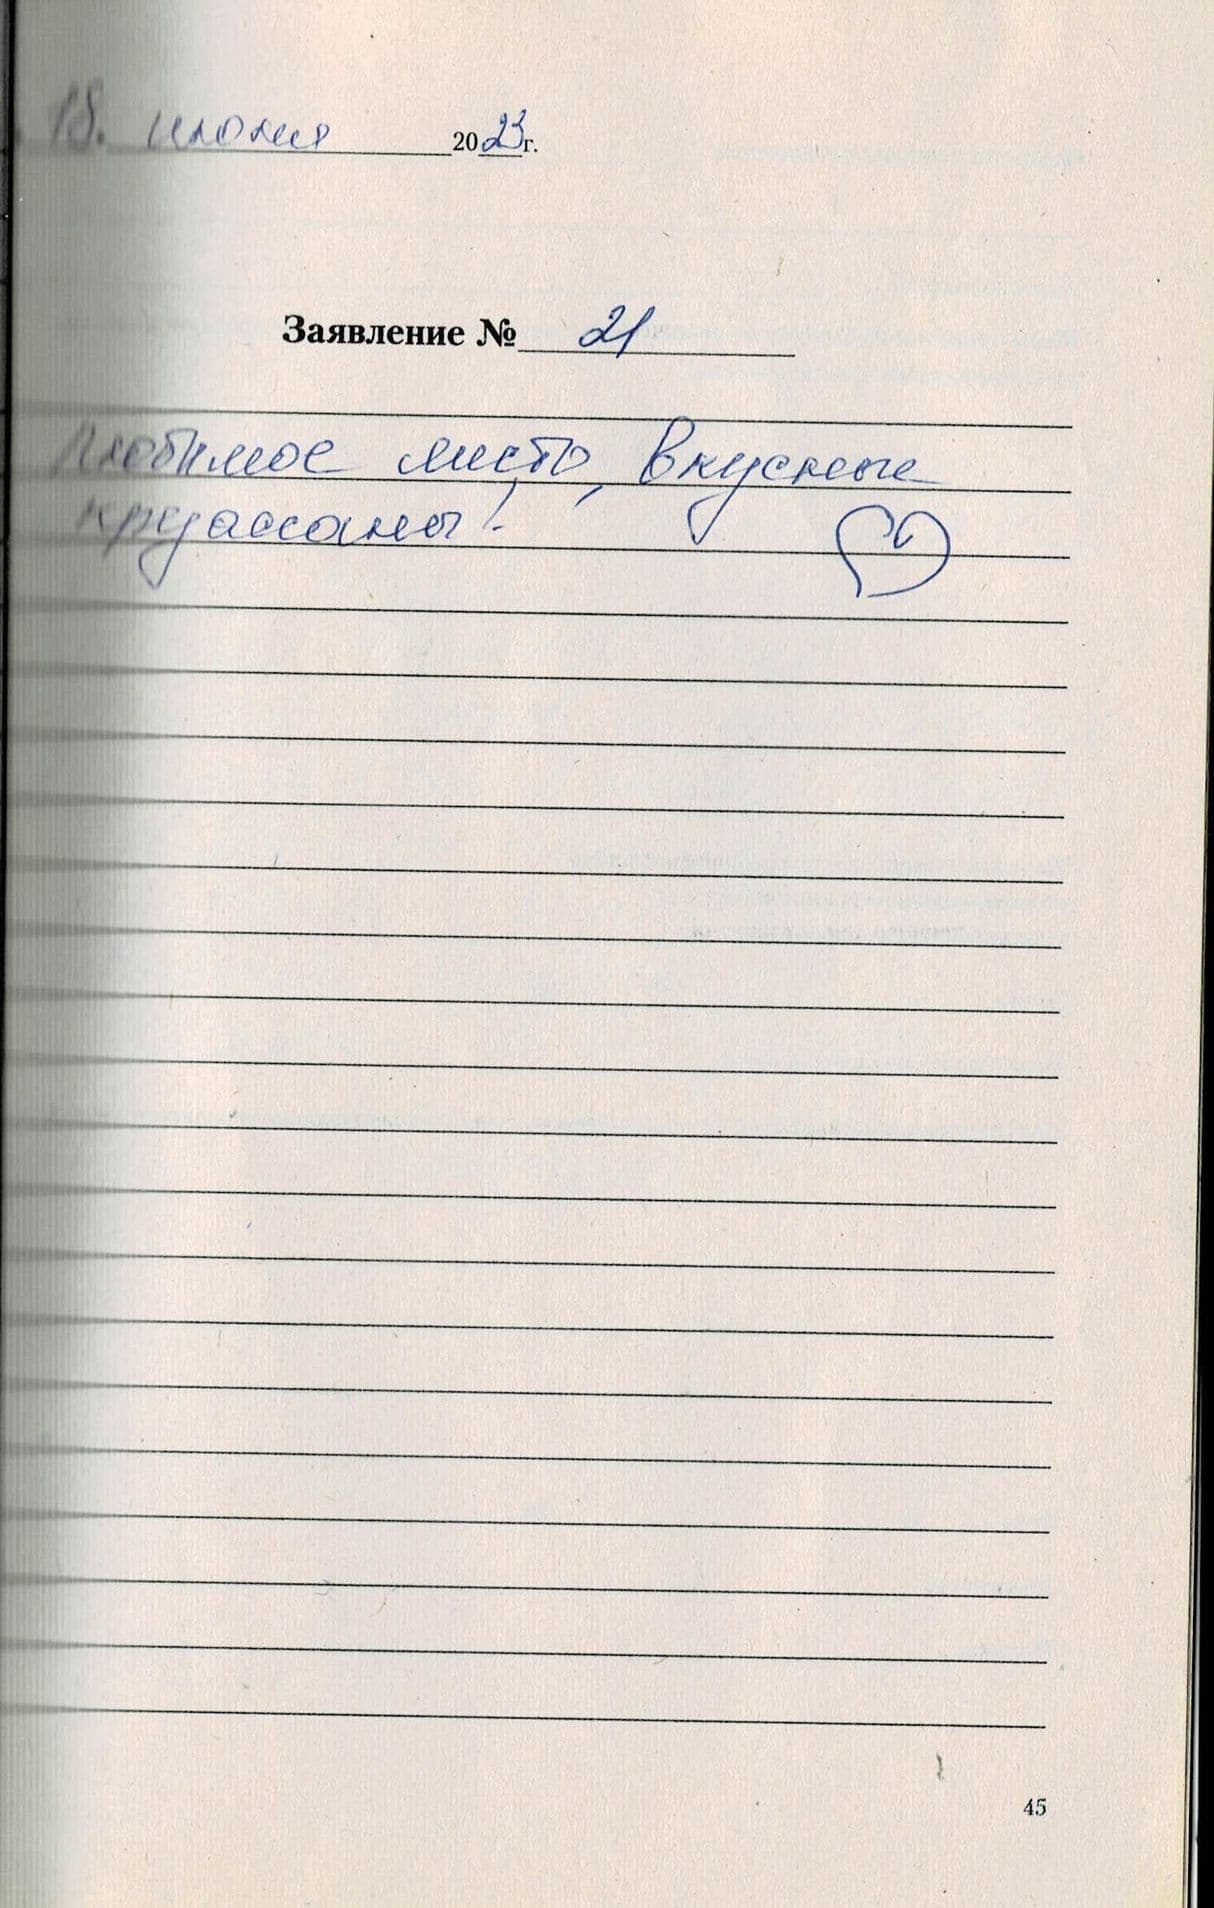 18. июня 2023г.
Заявление № 21
Любимое место, вкусные
круассаны!
45